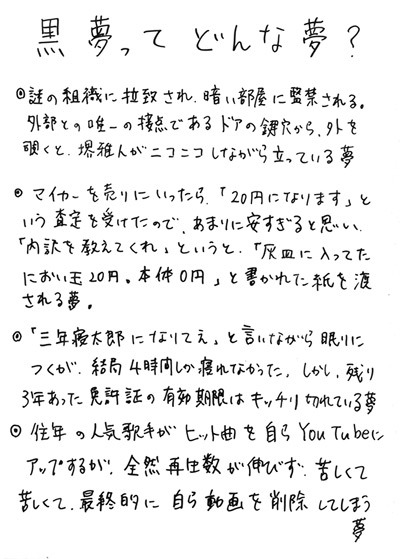 黒夢って どんな夢？
◎謎の組織に拉致され、暗い部屋に監禁される。
外部との唯一の接点であるドアの鍵穴から、外を
覗くと、堺雅人がニコニコしながら立っている夢
◎ マイカーを売りにいったら、「20円になります」と
いう査定を受けたので、あまりに安すぎると思い、
「内訳を教えてくれ」というと、「灰皿に入ってた
におい玉20円。本体0円」と書かれた紙を渡
される夢。
◎「三年寝太郎になりてえ」と言いながら眠りに
つくが、結局4時間しか寝れなかった。しかし、残り
3年あった免許証の有効期限はキッチリ切れている夢
◎ 往年の人気歌手がヒット曲を自らYouTubeに
アップするが、全然再生数が伸びず、苦しくて
苦しくて、最終的に自ら動画を削除してしまう
夢